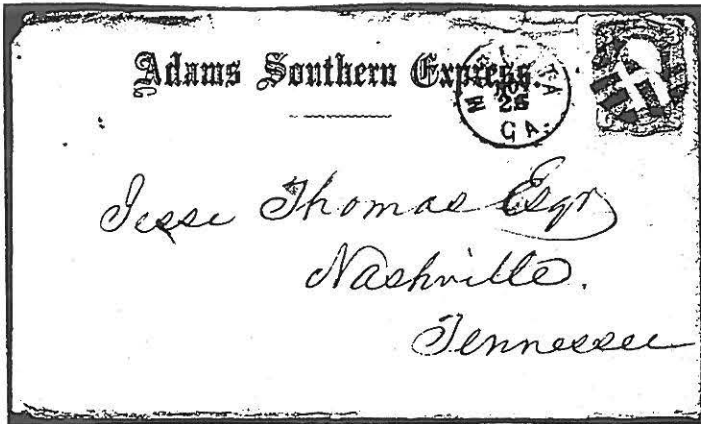 Adams Southern Express.
NOV
25
GA.
Jesse Thomas Esqr
Nashville.
Tennessee